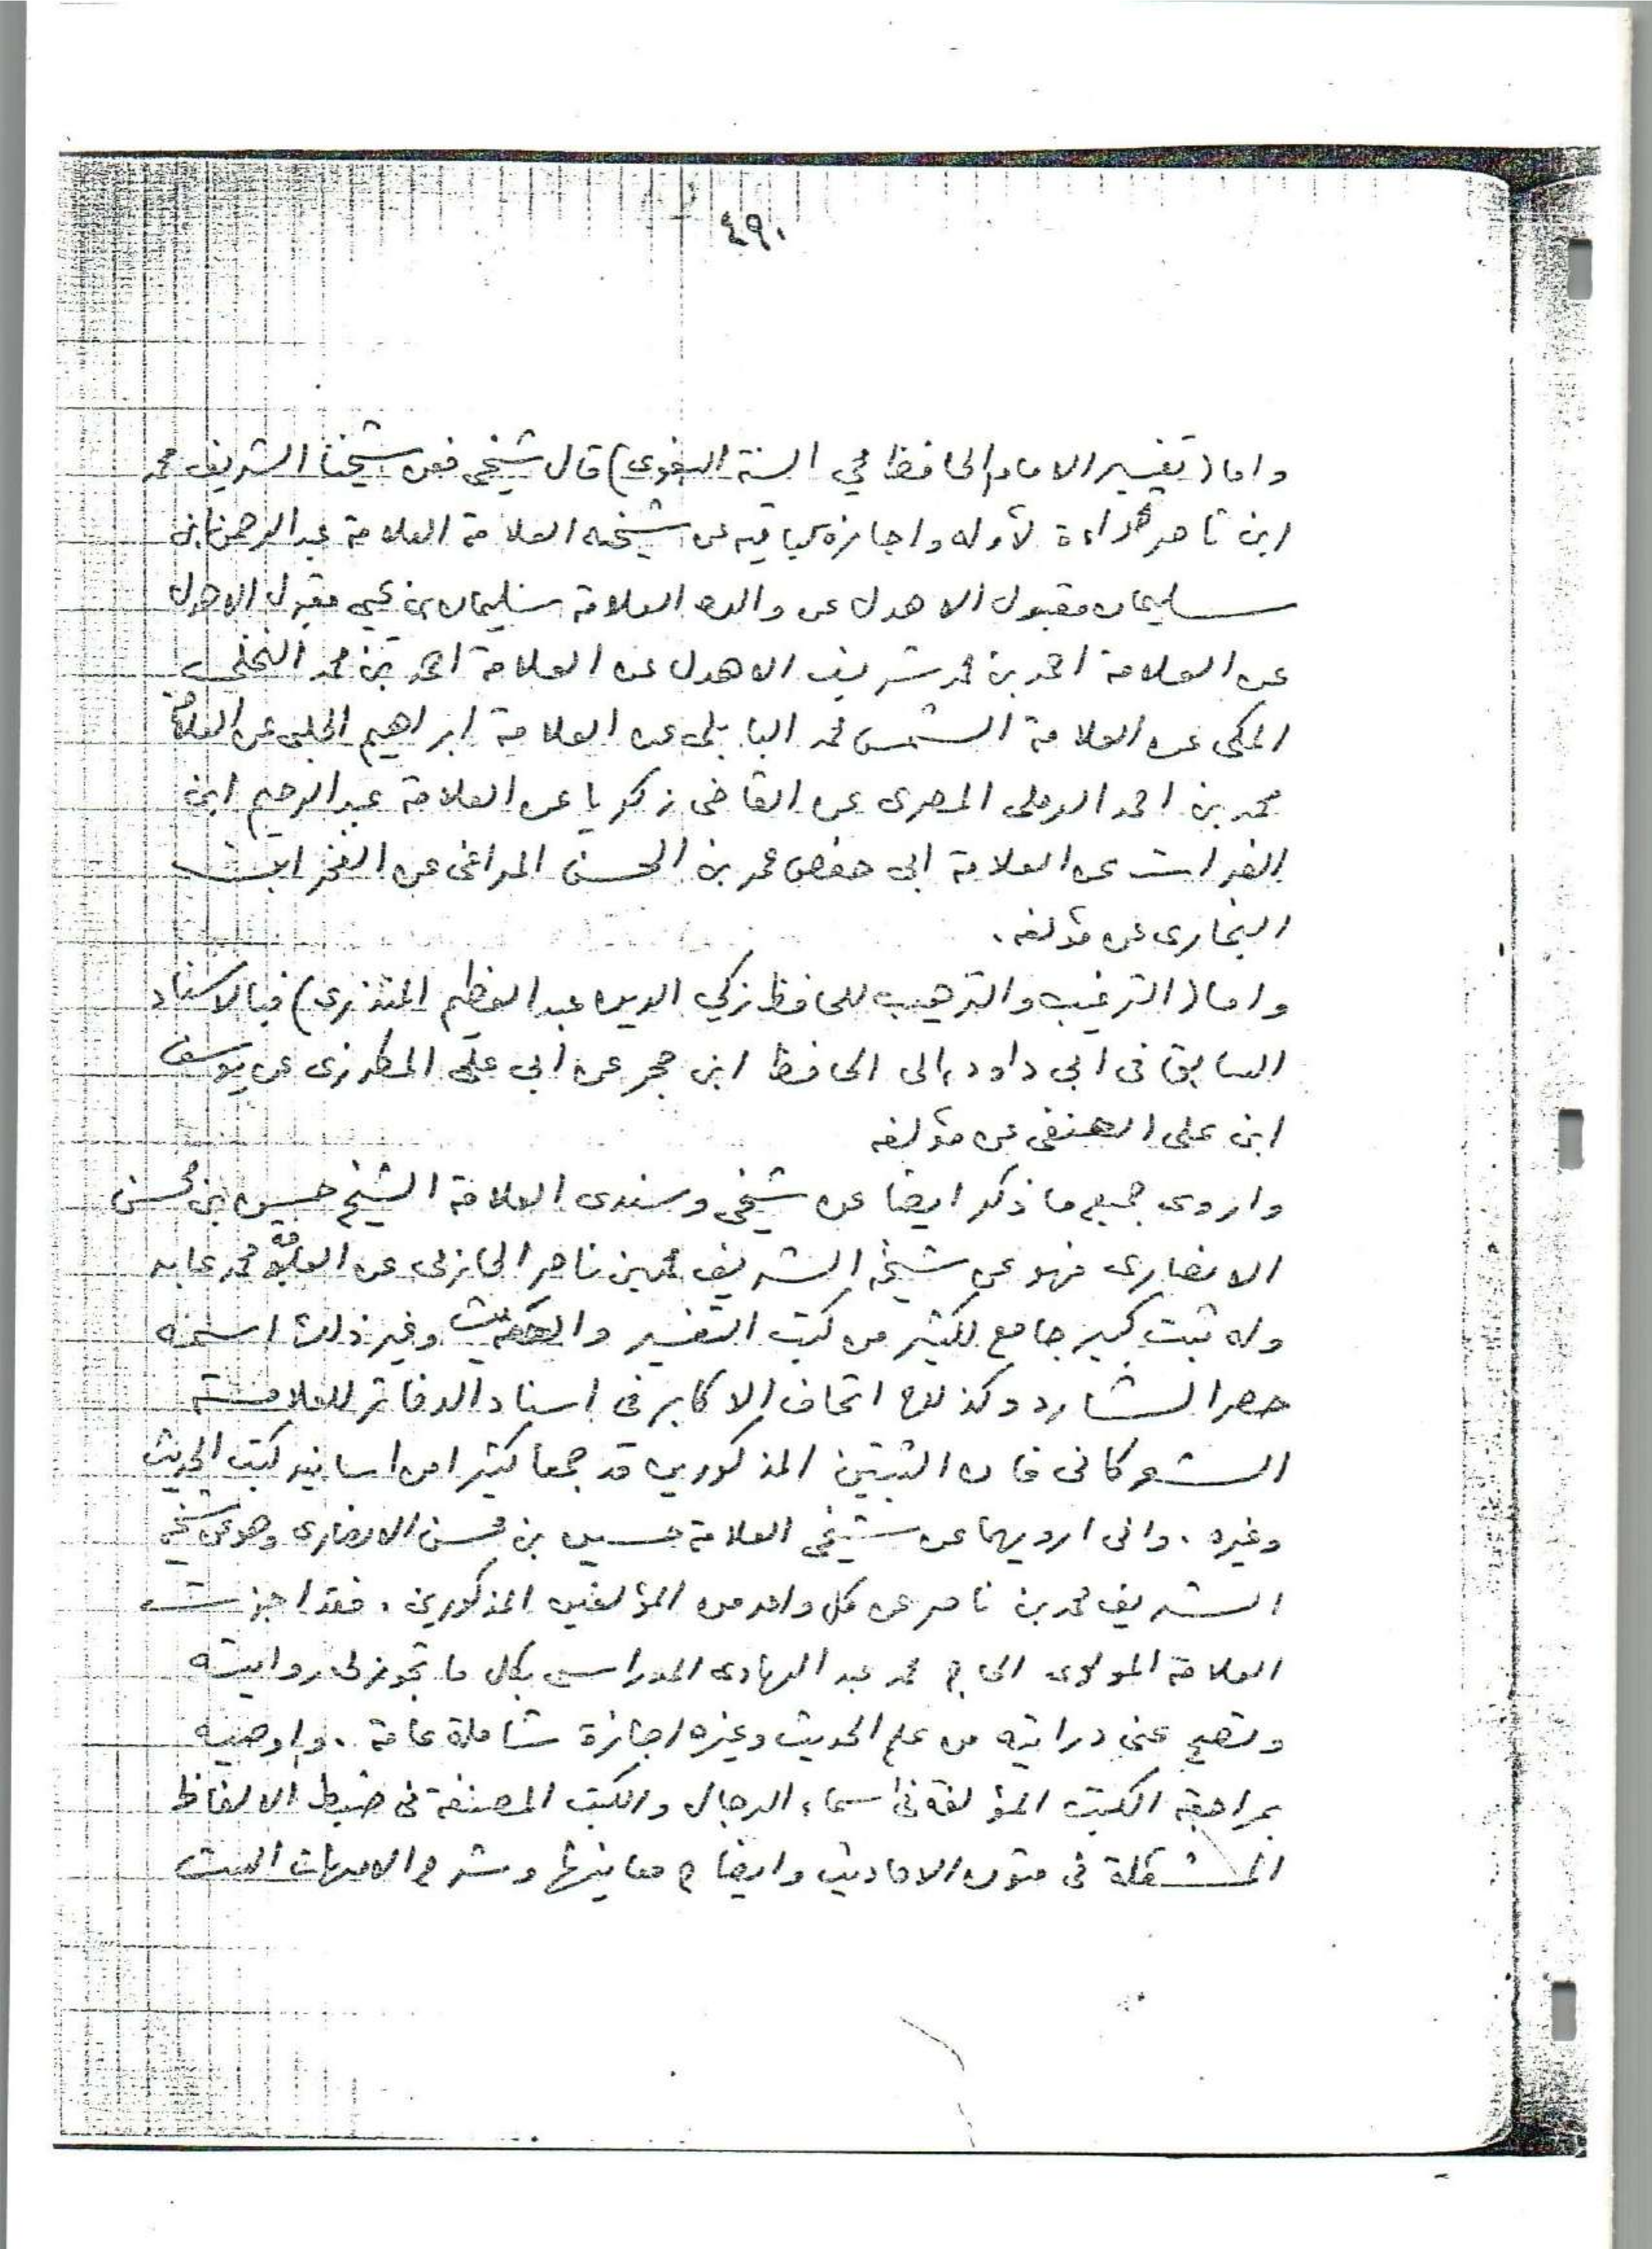 ٤٩٠
واما (تفسير الامام الحافظ محي السنة البغوى) قال شيخي فعن شيخنا الشريف محمد
ابن ناصر قراءة لأوله واجازة لباقيه عن شيخه العلامة العلامة عبد الرحمن ابن
سليمان مقبول الاهدل عن والده العلامة سليمان بن يحيى مقبول الاهدل
عن العلامة احمد بن محمد شريف الاهدل عن العلامة احمد بن محمد النخلى
المكى عن العلامة الشمس محمد البابلى عن العلامة ابراهيم الحلبى عن العلامة
محمد بن احمد الرملى المصرى عن القاضى زكريا عن العلامة عبد الرحيم ابن
الفرات عن العلامة ابى حفص عمر بن الحسن المراغى عن الفخر ابن
البخارى عن مؤلفه .
واما (الترغيب والترهيب للحافظ زكي الدين عبد العظيم المنذرى) فبالاسناد
السابق فى ابى داود الى الحافظ ابن حجر عن أبى على المطرزى عن يوسف
ابن على الحنفى عن مؤلفه
واروى جميع ما ذكر ايضا عن شيخى وسندى العلامة الشيخ حسين بن محسن
الانصارى فهو عن شيخه الشريف محمد بن ناصر الحازمى عن العلامة محمد عابد
وله ثبت كبير جامع لكثير من كتب التفسير والحديث وغير ذلك اسمه
حصر الشارد وكذلك اتحاف الاكابر فى اسناد الدفاتر للعلامة
الشوكانى فان الثبتين المذكورين قد جمعا كثيرا من اسانيد كتب الحديث
وغيره . وانى ارويهما عن شيخى العلامة حسين بن محسن الانصارى وهو عن شيخه
الشريف محمد بن ناصر عن كل واحد من المؤلفين المذكورين . فقد اجزت
العلامة المولوى الحاج محمد عبد الهادى المدراسى بكل ما تجوز لى روايته
وتصح عنى درايته من علم الحديث وغيره اجازة شاملة عامة . واوصيه
بمراجعة الكتب المؤلفة فى اسماء الرجال والكتب المصنفة فى ضبط الالفاظ
المشكلة فى متون الاحاديث وايضاح معانيها وشرح الامهات الست